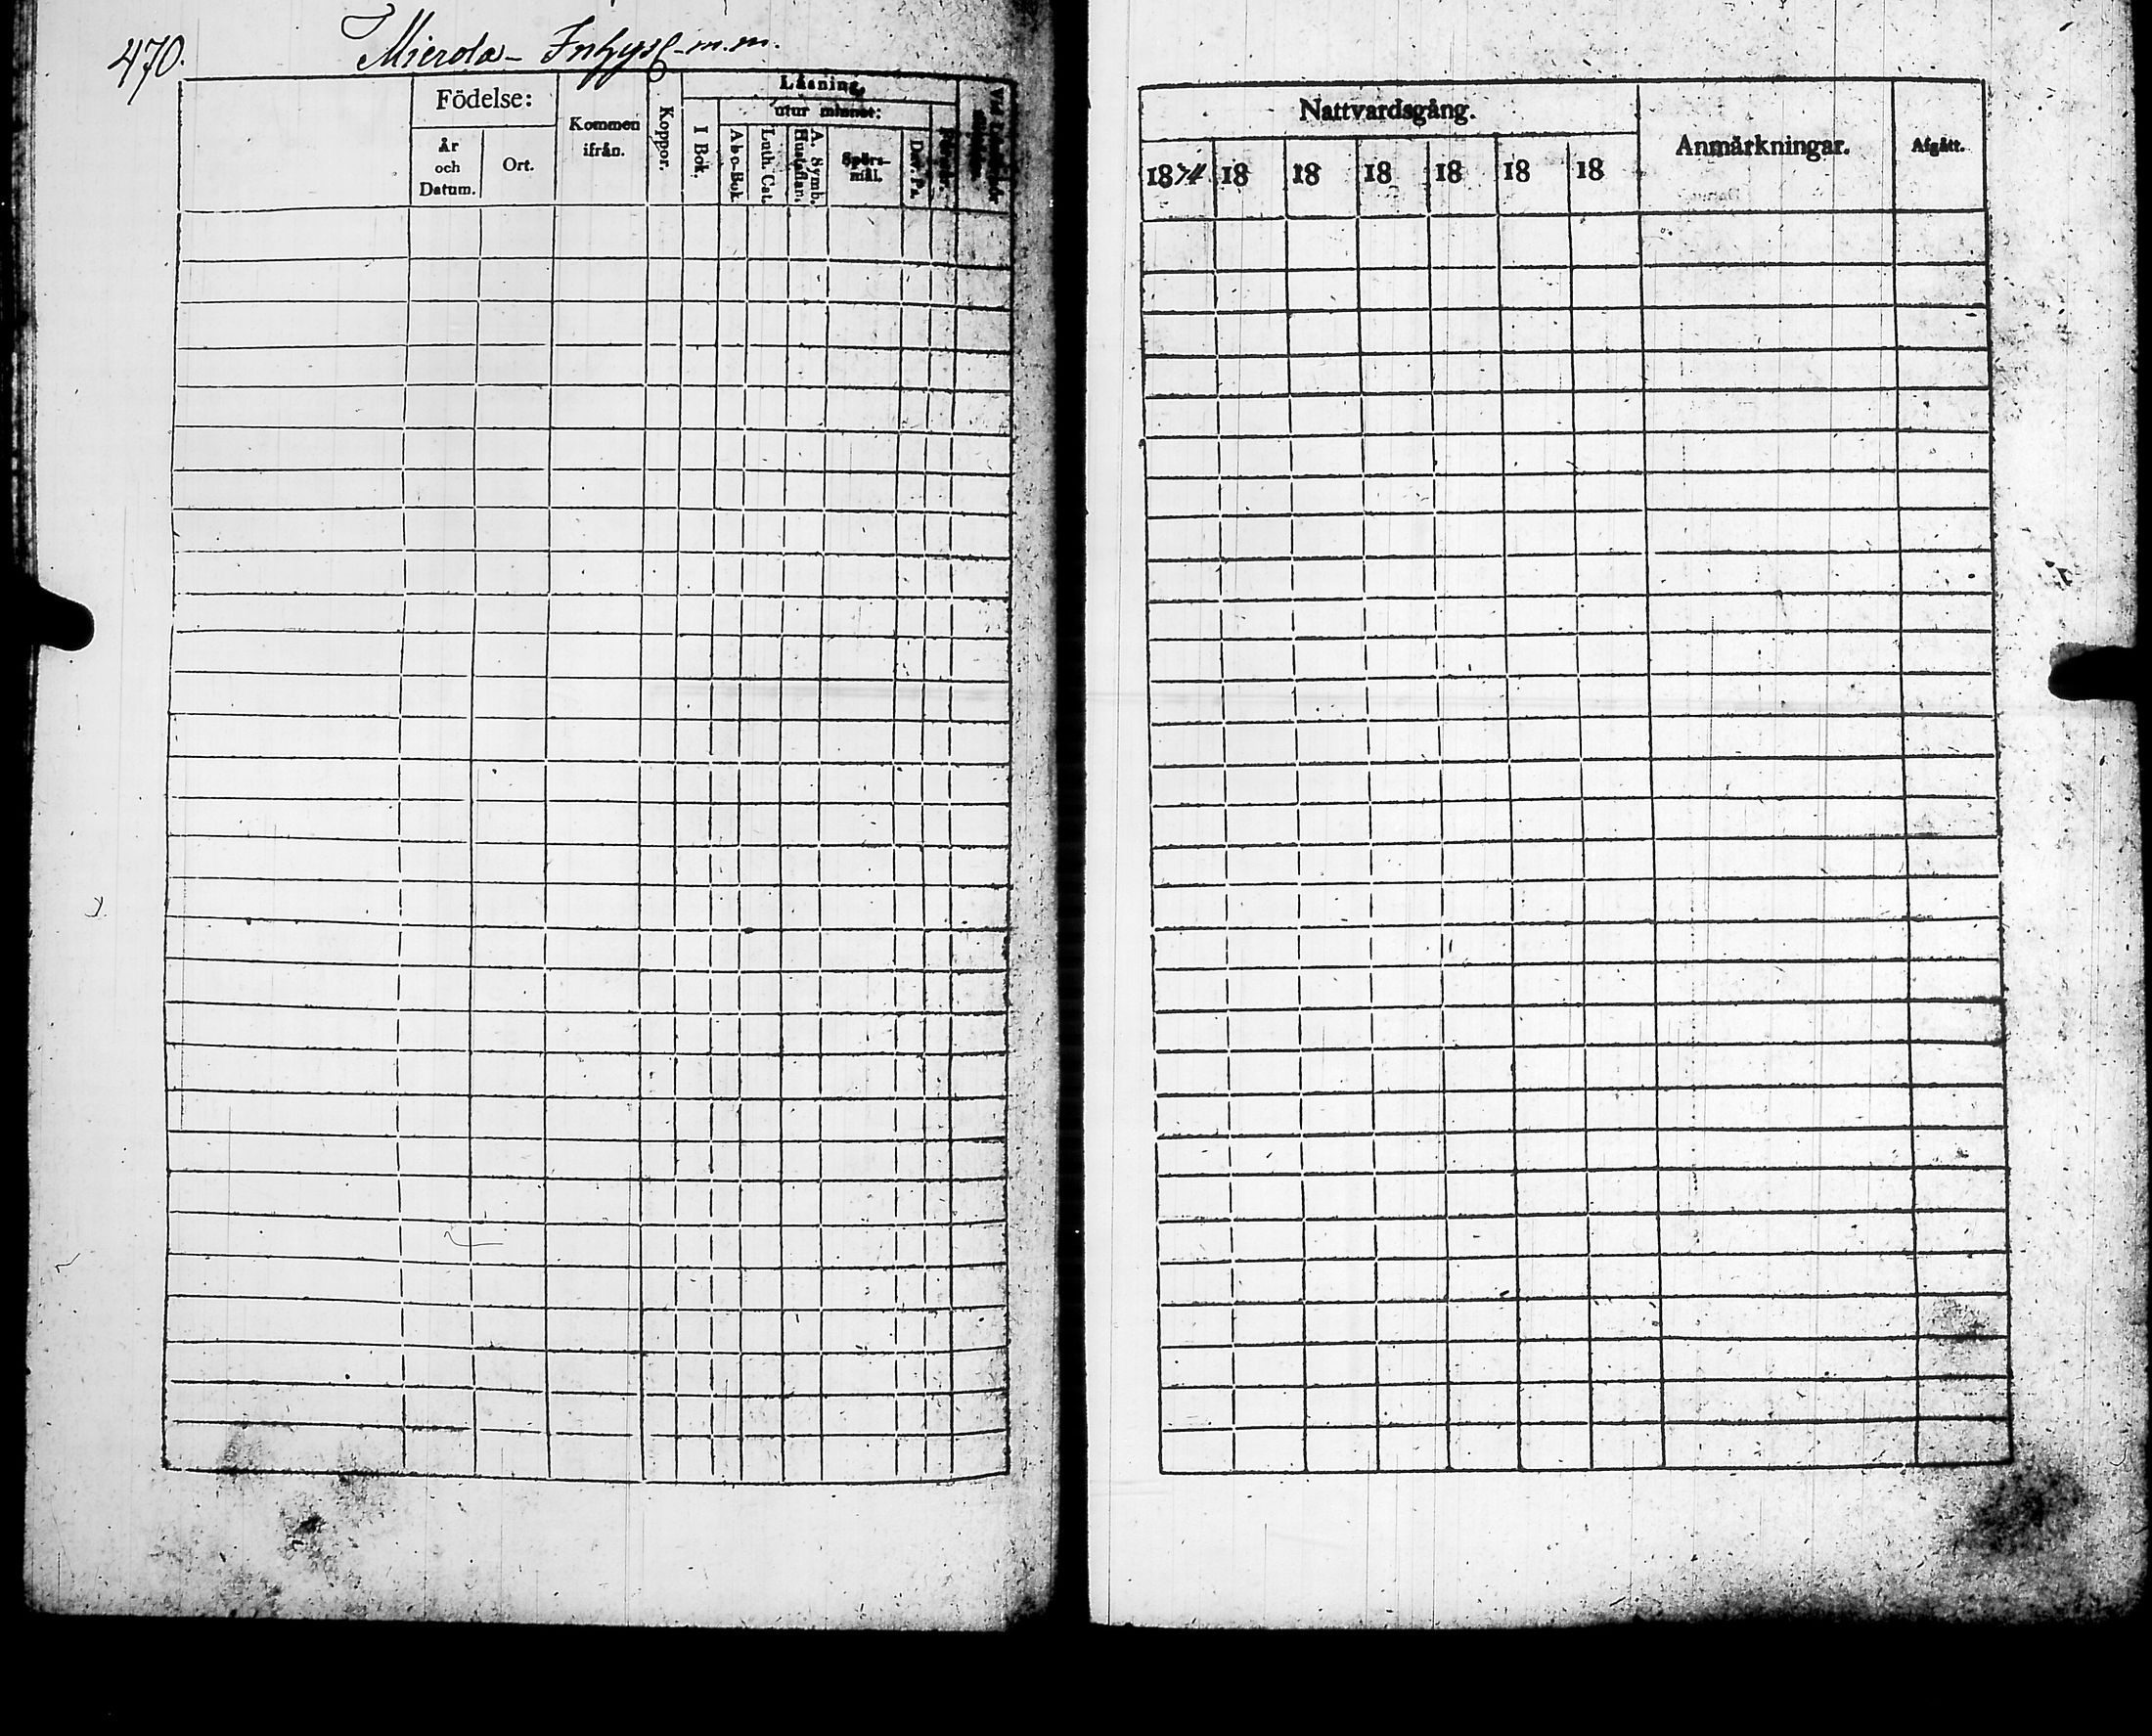 470.
Mierola - Inhyse m.m.
Födelse:
År och Datum.
Ort.
Kommen ifrån.
Koppor.
Läsning,
I Bok.
utur minnet:
Abc-Bok
Luth. Cat.
Hustaflan.
A. Symb.
Spörs-mål.
Dav. Ps.
Nattvardsgång.
1874 18 18 18 18 18 18
Anmärkningar.
Afgått.